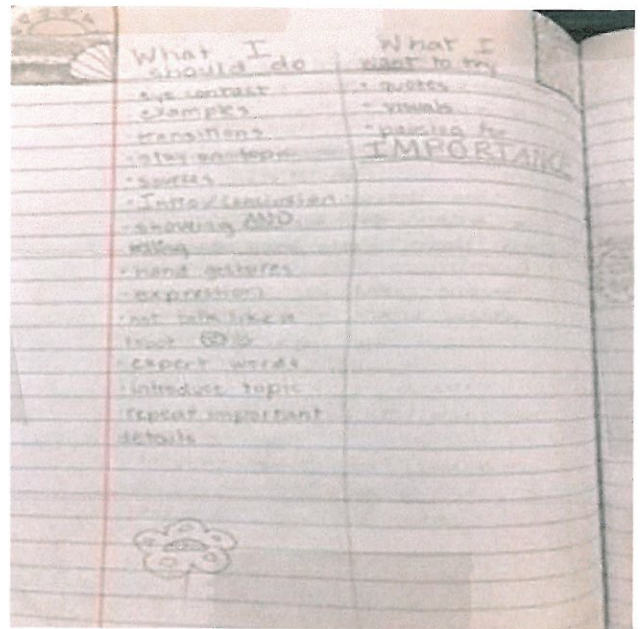 What I
should do
· eye contact
· examples
· transitions
· stay on topic
· sources
· Intro/conclusion
· showing AND
telling
· hand gestures
· expression
· not talk like a
· expert words
· introduce topic
· repeat important
details
What I
want to try
· quotes
· visuals
· pausing for
IMPORTANCE